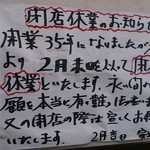 閉店休業のお知らせ
開業35年になりましたが
より2月末略以て閉
休業といたします。永い間の
願を本当と有難
又の開店の際は宜しくお
いたします。
2月吉日